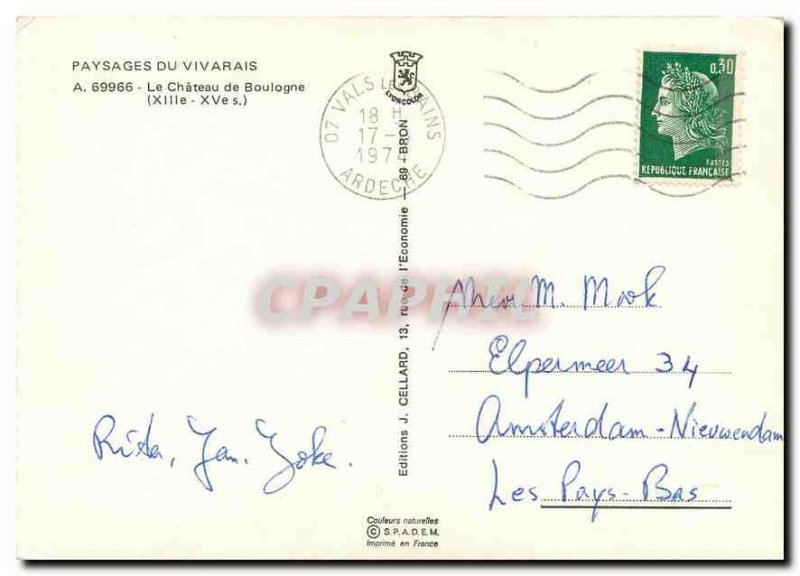 PAYSAGES DU VIVARAIS
A. 69966 - Le Château de Boulogne
(XIIIe - XVe s.)
LYONCOLOR
07 VALS LES BAINS
18 H
17 -
1974
ARDECHE
0,30
POSTES
REPUBLIQUE FRANÇAISE
Editions J. CELLARD, 13, rue de l'Economie - 69 - BRON
CPAPHIL
Mevr. M. Mook
Elpermeer 34
Amsterdam - Nieuwendam
Les Pays-Bas
Rita, Jan. Joke.
Couleurs naturelles
© S.P.A.D.E.M.
Imprimé en France